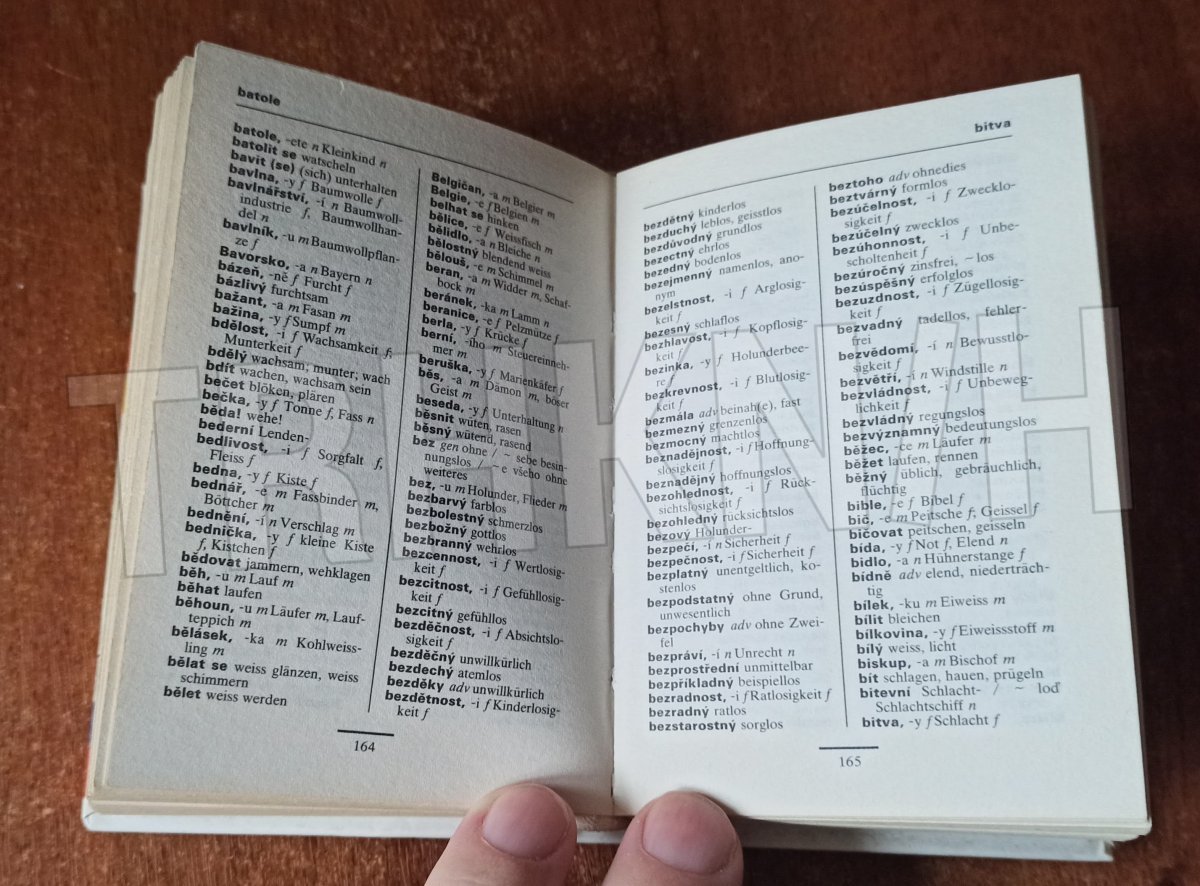 batole
batole, -ete n Kleinkind n
batolit se watscheln
bavit (se) (sich) unterhalten
bavlna, -y f Baumwolle f
bavlnářství, -í n Baumwoll-
industrie f, Baumwollhan-
del n
bavlník, -u m Baumwollpflan-
ze f
Bavorsko, -a n Bayern n
bázeň, -ně f Furcht f
bázlivý furchtsam
bažant, -a m Fasan m
bažina, -y f Sumpf m
bdělost, -i f Wachsamkeit f;
Munterkeit f
bdělý wachsam; munter; wach
bdít wachen, wachsam sein
bečet blöken, plären
bečka, -y f Tonne f, Fass n
běda! wehe!
bederní Lenden-
bedlivost, -i f Sorgfalt f,
Fleiss f
bedna, -y f Kiste f
bednář, -e m Fassbinder m,
Böttcher m
bednění, -í n Verschlag m
bednička, -y f kleine Kiste
f, Kistchen f
bědovat jammern, wehklagen
běh, -u m Lauf m
běhat laufen
běhoun, -u m Läufer m, Lauf-
teppich m
bělásek, -ka m Kohlweiss-
ling m
bělat se weiss glänzen, weiss
schimmern
bělet weiss werden
Belgičan, -a m Belgier m
Belgie, -e f Belgien m
belhat se hinken
bělice, -e f Weissfisch m
bělidlo, -a n Bleiche n
bělostný blendend weiss
bělouš, -e m Schimmel m
beran, -a m Widder m, Schaf-
bock m
beránek, -ka m Lamm n
beranice, -e f Pelzmütze f
berla, -y f Krücke f
berní, -ího m Steuereinneh-
mer m
beruška, -y f Marienkäfer f
běs, -a m Dämon m, böser
Geist m
beseda, -y f Unterhaltung n
běsnit wüten, rasen
běsný wütend, rasend
bez gen ohne / ~ sebe besin-
nungslos / ~ e všeho ohne
weiteres
bez, -u m Holunder, Flieder m
bezbarvý farblos
bezbolestný schmerzlos
bezbožný gottlos
bezbranný wehrlos
bezcennost, -i f Wertlosig-
keit f
bezcitnost, -i f Gefühllosig-
keit f
bezcitný gefühllos
bezděčnost, -i f Absichtslo-
sigkeit f
bezděčný unwillkürlich
bezdechý atemlos
bezděky adv unwillkürlich
bezdětnost, -i f Kinderlosig-
keit f
164
bitva
bezdětný kinderlos
bezduchý leblos, geisstlos
bezdůvodný grundlos
bezectný ehrlos
bezedný bodenlos
bezejmenný namenlos, ano-
nym
bezelstnost, -i f Arglosig-
keit f
bezesný schlaflos
bezhlavost, -i f Kopflosig-
keit f
bezinka, -y f Holunderbee-
re f
bezkrevnost, -i f Blutlosig-
keit f
bezmála adv beinah(e), fast
bezmezný grenzenlos
bezmocný machtlos
beznadějnost, -i f Hoffnung-
slosigkeit f
beznadějný hoffnungslos
bezohlednost, -i f Rück-
sichtslosigkeit f
bezohledný rücksichtslos
bezový Holunder-
bezpečí, -í n Sicherheit f
bezpečnost, -i f Sicherheit f
bezplatný unentgeltlich, ko-
stenlos
bezpodstatný ohne Grund,
unwesentlich
bezpochyby adv ohne Zwei-
fel
bezpráví, -í n Unrecht n
bezprostřední unmittelbar
bezpříkladný beispiellos
bezradnost, -i f Ratlosigkeit f
bezradný ratlos
bezstarostný sorglos
beztoho adv ohnedies
beztvárný formlos
bezúčelnost, -i f Zwecklo-
sigkeit f
bezúčelný zwecklos
bezúhonnost, -i f Unbe-
scholtenheit f
bezúročný zinsfrei, ~ los
bezúspěšný erfolglos
bezuzdnost, -i f Zügellosig-
keit f
bezvadný tadellos, fehler-
frei
bezvědomí, -í n Bewusstlo-
sigkeit f
bezvětří, -í n Windstille n
bezvládnost, -i f Unbeweg-
lichkeit f
bezvládný regungslos
bezvýznamný bedeutungslos
běžec, -ce m Läufer m
běžet laufen, rennen
běžný üblich, gebräuchlich,
flüchtig
bible, -e f Bibel f
bič, -e m Peitsche f; Geissel f
bičovat peitschen, geisseln
bída, -y f Not f, Elend n
bidlo, -a n Hühnerstange f
bídně adv elend, niederträch-
tig
bílek, -ku m Eiweiss m
bílit bleichen
bílkovina, -y f Eiweissstoff m
bílý weiss, licht
biskup, -a m Bischof m
bít schlagen, hauen, prügeln
bitevní Schlacht- / ~ loď
Schlachtschiff n
bitva, -y f Schlacht f
165